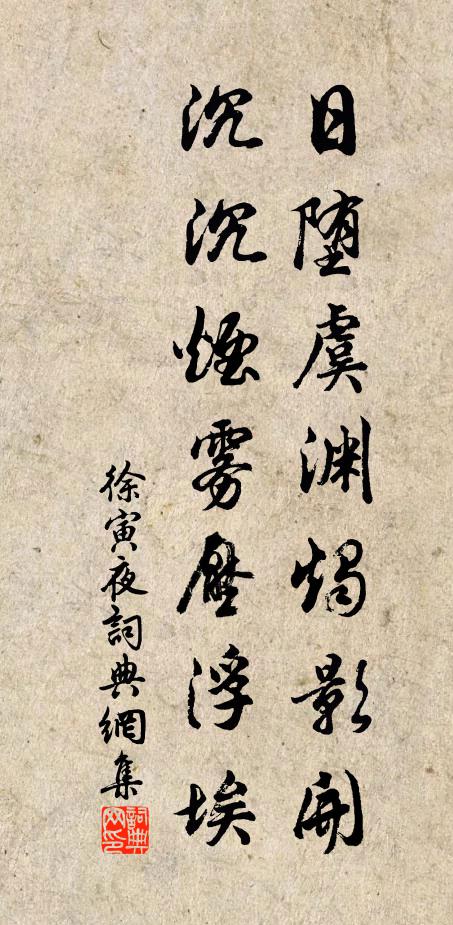 日堕虞渊燭影開
沉沉煙霧壓浮埃
徐寅夜詞典網集
詞典网印